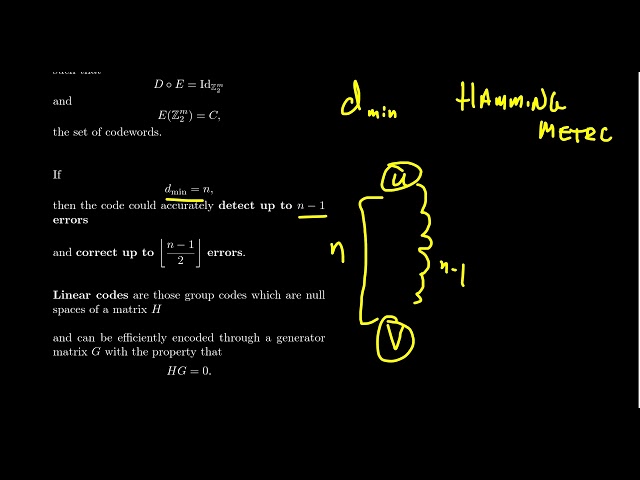 such that
D ∘ E = Id_{ℤ₂^m}
and
E(ℤ₂^m) = C,
the set of codewords.
If
d_min = n,
then the code could accurately detect up to n − 1
errors
and correct up to ⌊(n − 1)/2⌋ errors.
Linear codes are those group codes which are null
spaces of a matrix H
and can be efficiently encoded through a generator
matrix G with the property that
HG = 0.
d_min
HAMMING
METRC
u
n
n-1
V